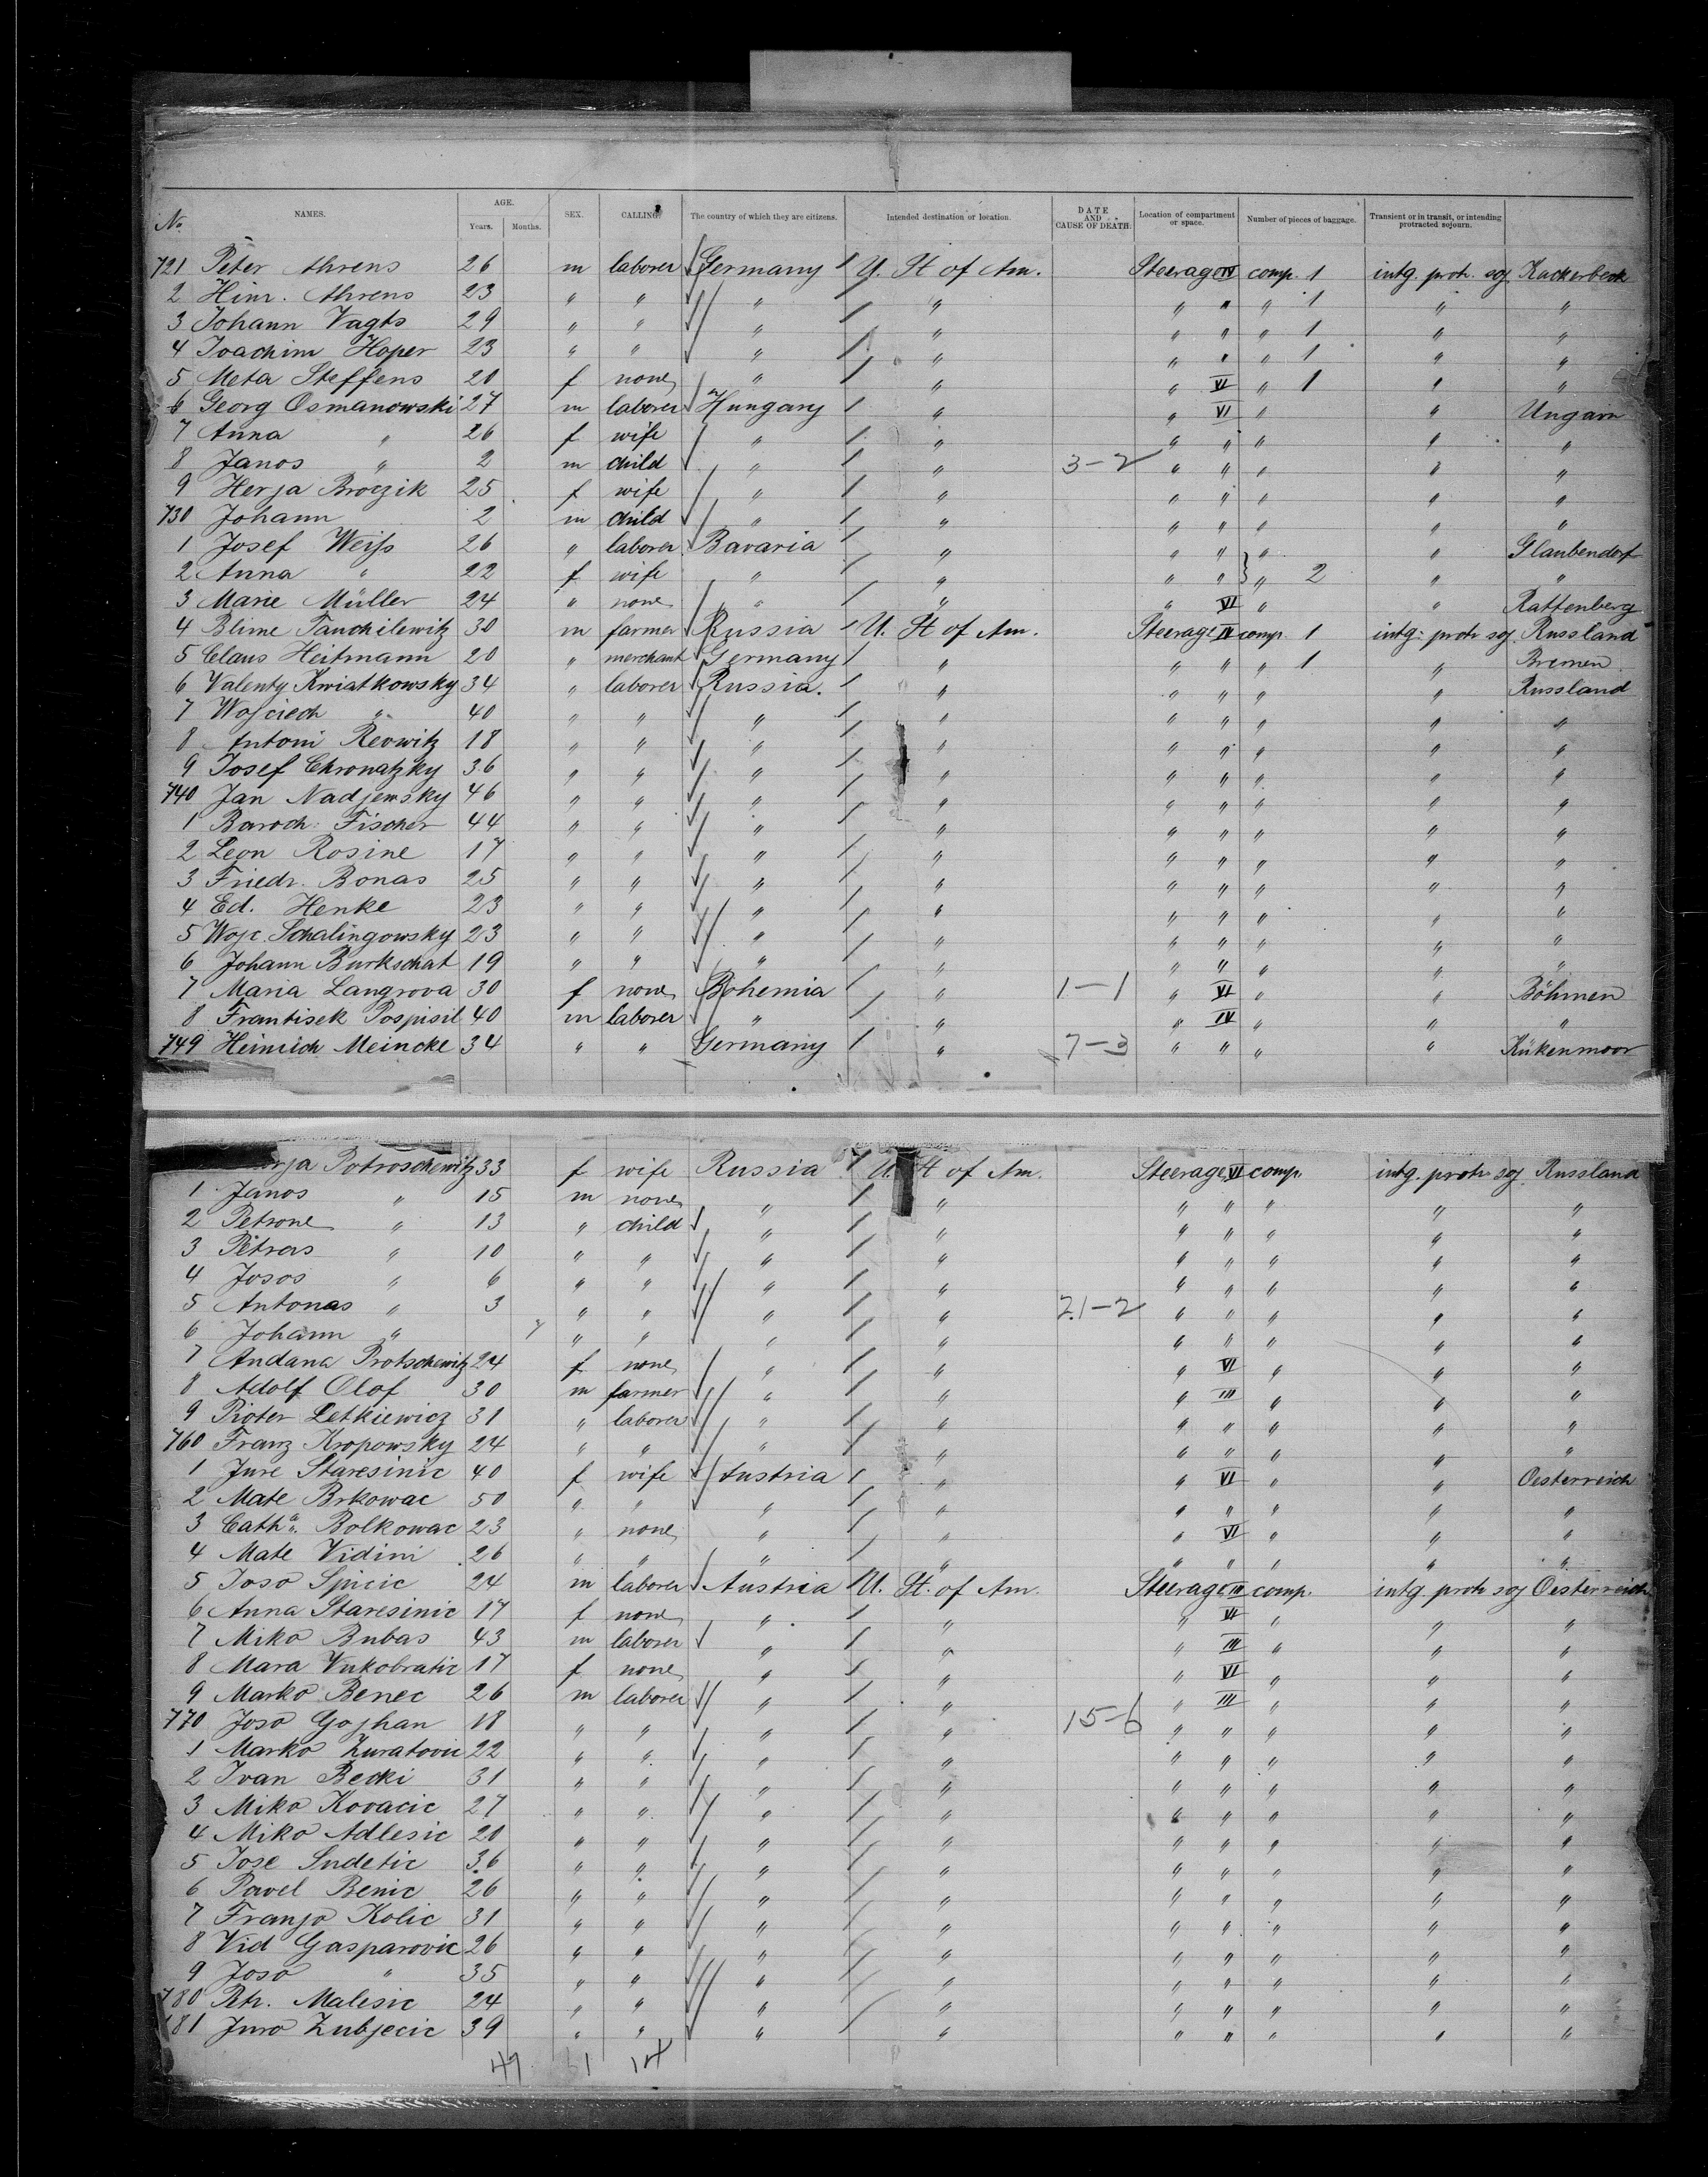 No. NAMES. AGE. Years. Months. SEX. CALLING. The country of which they are citizens. Intended destination or location. DATE AND CAUSE OF DEATH. Location of compartment or space. Number of pieces of baggage. Transient or in transit, or intending protracted sojourn.
721 Peter Ahrens 26 m laborer Germany U. St of Am. Steerage IV comp. 1 intg. protr. soj. Kackerbeck
2 Hinr. Ahrens 23 " " " " " " " 1 " "
3 Johann Vagts 29 " " " " " " " 1 " "
4 Joachim Hoper 23 " " " " " " " 1 " "
5 Meta Steffens 20 f none " " " VI " 1 " "
6 Georg Osmanowski 27 m laborer Hungary " " VI " " Ungarn
7 Anna " 26 f wife " " " " " " "
8 Janos " 2 m child " " 3-2 " " " " "
9 Herja Broczik 25 f wife " " " " " " "
730 Johann 2 m child " " " " " " "
1 Josef Weiß 26 " laborer Bavaria " " " " " Glaubendorf
2 Anna " 22 f wife " " " " " 2 " "
3 Marie Müller 24 " none " " " VI " " Rattenberg
4 Blime Tauchilewitz 30 m farmer Russia U. St of Am. Steerage IV comp. 1 intg. protr soj. Russland
5 Claus Heitmann 20 " merchant Germany " " " " 1 " Bremen
6 Valenty Kwiatkowsky 34 " laborer Russia. " " " " " Russland
7 Wojciech " 40 " " " " " " " " "
8 Antoni Revwitz 18 " " " " " " " " "
9 Josef Chronatzky 36 " " " " " " " " "
740 Jan Nadjewsky 46 " " " " " " " " "
1 Baroch. Fischer 44 " " " " " " " " "
2 Leon Rosine 17 " " " " " " " " "
3 Friedr. Bonas 25 " " " " " " " " "
4 Ed. Henke 23 " " " " " " " " "
5 Wojc. Schalingowsky 23 " " " " " " " " "
6 Johann Burkschat 19 " " " " " " " " "
7 Maria Langrova 30 f none Bohemia " 1-1 " VI " " Böhmen
8 Frantisek Pospisil 40 m laborer " " " IV " " "
749 Heinrich Meincke 34 " " Germany " 7-3 " " " " Kükenmoor
Potroschewitz 33 f wife Russia U. St of Am. Steerage VI comp. intg. protr soj. Russland
1 Janos " 15 m none " " " " " " "
2 Petrone " 13 " child " " " " " " "
3 Petras " 10 " " " " " " " " "
4 Josos " 6 " " " " " " " " "
5 Antonas " 3 " " " " 21-2 " " " " "
6 Johann " 7 " " " " " " " " "
7 Andana Protschewitz 24 f none " " " VI " " "
8 Adolf Olof 30 m farmer " " " III " " "
9 Pioter Letkiewicz 31 " laborer " " " " " " "
760 Franz Kropowsky 24 " " " " " " " " "
1 Jure Staresinic 40 f wife Austria " " VI " " Oesterreich
2 Mate Brkowac 50 " " " " " " " " "
3 Cath. Bolkowac 23 " none " " " VI " " "
4 Mate Vidini 26 " " " " " " " " "
5 Joso Spicic 24 m laborer Austria U. St. of Am. Steerage III comp. intg. protr soj Oesterreich
6 Anna Staresinic 17 f none " " " VI " " "
7 Miko Bubas 43 m laborer " " " III " " "
8 Mara Vukobratic 17 f none " " " VI " " "
9 Marko Benec 26 m laborer " " " III " " "
770 Joso Gojhan 18 " " " " 15-6 " " " " "
1 Marko Zuratovic 22 " " " " " " " " "
2 Ivan Becki 31 " " " " " " " " "
3 Miko Kovacic 27 " " " " " " " " "
4 Miko Adlesic 20 " " " " " " " " "
5 Jose Sudetic 36 " " " " " " " " "
6 Pavel Benic 26 " " " " " " " " "
7 Franjo Kolic 31 " " " " " " " " "
8 Vid Gasparovic 26 " " " " " " " " "
9 Joso " 35 " " " " " " " " "
780 Petr. Malesic 24 " " " " " " " " "
181 Juro Zubjecic 39 " " " " " " " " "
47 61 14